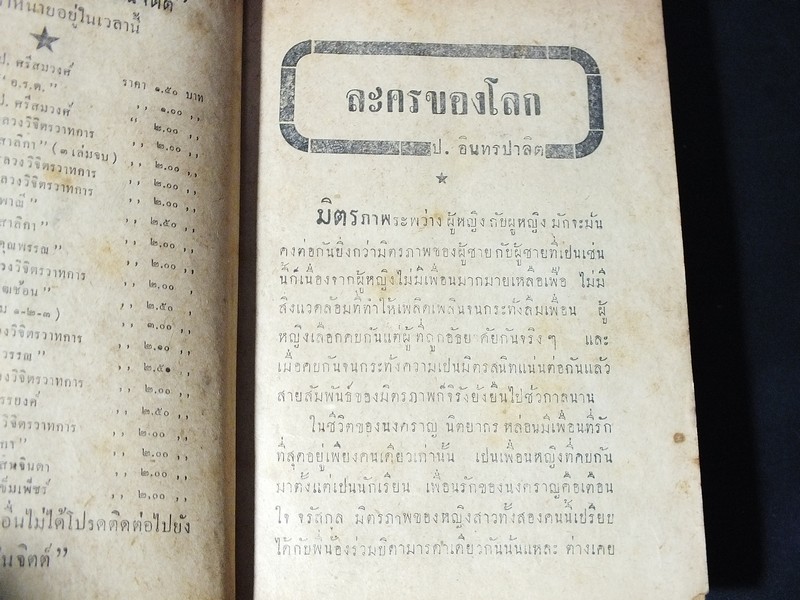 หน่ายอยู่ในเวลานี้
ป. ศรีสมวงศ์ ราคา ๑.๕๐ บาท
" อ.ร.ด. " ,, ๑.๐๐ ,,
ป. ศรีสมวงศ์ " ๒.๐๐ ,,
ลวงวิจิตรวาทการ ,, ๒.๐๐ ,,
สาลิกา " ( ๓ เล่มจบ ) ,, ๒.๐๐ ,,
ลวงวิจิตรวาทการ ,, ๒.๐๐ ,,
ลวงวิจิตรวาทการ ,, ๒.๐๐ ,,
พาณี " ,, ๒.๕๐ ,,
สาลิกา " ,, ๒.๐๐ ,,
คุณพรรณ " ,, ๒.๐๐ ,,
วงวิจิตรวาทการ ,, ๒.๐๐ ,,
ฒซ้อน " ,, ๒.๕๐ ,
ม ๑-๒-๓ ) ,, ๓.๐๐ ,,
วิจิตรวาทการ ,, ๒.๑๐ ,,
วรรณ " ,, ๒.๕๑ ,,
งวิจิตรวาทการ ,, ๒.๐๐ ,,
รยงค์ ,, ๒.๕๐ ,,
วิจิตรวาทการ ,, ๒.๐๐ ,,
กร " ,, ๒.๐๐ ,,
,, ๒.๐๐ ,,
ข็มเพ็ชร์ ,, ๒.๐๐ ,,
อื่นไม่ได้โปรดติดต่อไปยัง
นจิตต์"
ละครของโลก
ป. อินทรปาลิต
มิตรภาพระหว่าง ผู้หญิง กับผู้หญิง มักจะมั่น
คงต่อกันยิ่งกว่ามิตรภาพของผู้ชาย กับผู้ชายที่เป็นเช่น
นี้ก็เนื่องจากผู้หญิงไม่มีเพื่อนมากมายเหลือเฟือ ไม่มี
สิ่งแวดล้อมที่ทำให้เพลิดเพลินจนกระทั่งลืมเพื่อน ผู้
หญิงเลือกคบกันแต่ผู้ ที่ถูกอัธยาศัยกันจริง ๆ และ
เมื่อคบกันจนกระทั่งความเป็นมิตรสนิทแน่นต่อกันแล้ว
สายสัมพันธ์ของมิตรภาพก็จีรังยั่งยืนไปชั่วกาลนาน
ในชีวิตของนงคราญ นิตยากร หล่อนมีเพื่อนที่รัก
ที่สุดอยู่เพียงคนเดียวเท่านั้น เป็นเพื่อนหญิงที่คบกัน
มาตั้งแต่เป็นนักเรียน เพื่อนรักของนงคราญคือเตือน
ใจ จรัสกุล มิตรภาพของหญิงสาวทั้งสองคนนี้เปรียบ
ได้กับพี่น้องร่วมบิดามารดาเดียวกันนั่นแหละ ต่างเคย